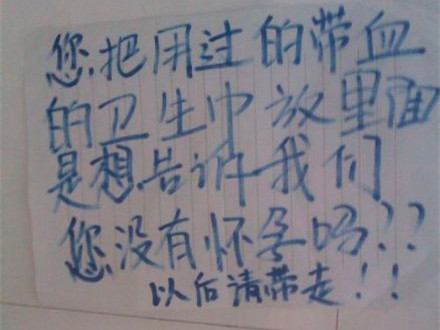 您把用过的带血
的卫生巾放里面
是想告诉我们
您没有怀孕吗??
以后请带走!!